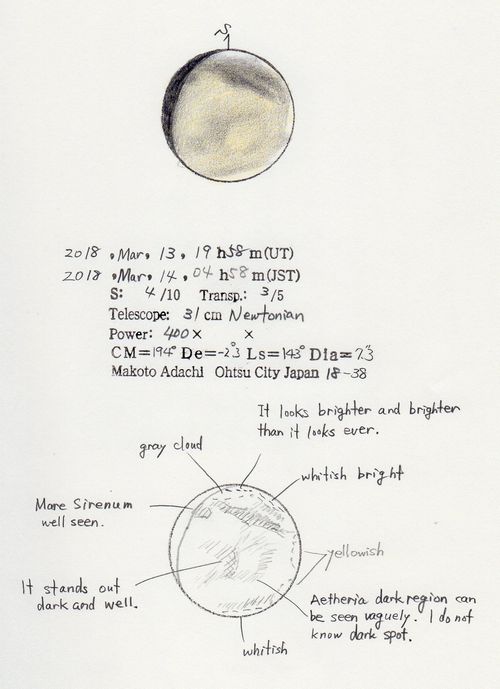 S
2018, Mar, 13, 19 h58 m(UT)
2018, Mar, 14, 04 h58 m(JST)
S: 4/10 Transp.: 3/5
Telescope: 31 cm Newtonian
Power: 400× ×
CM=194° De=-2°.3 Ls=143° Dia=7".3
Makoto Adachi Ohtsu City Japan 18-38
It looks brighter and brighter
than it looks ever.
gray cloud
whitish bright
Mare Sirenum
well seen.
yellowish
It stands out
dark and well.
Aetheria dark region can
be seen vaguely. I do not
know dark spot.
whitish